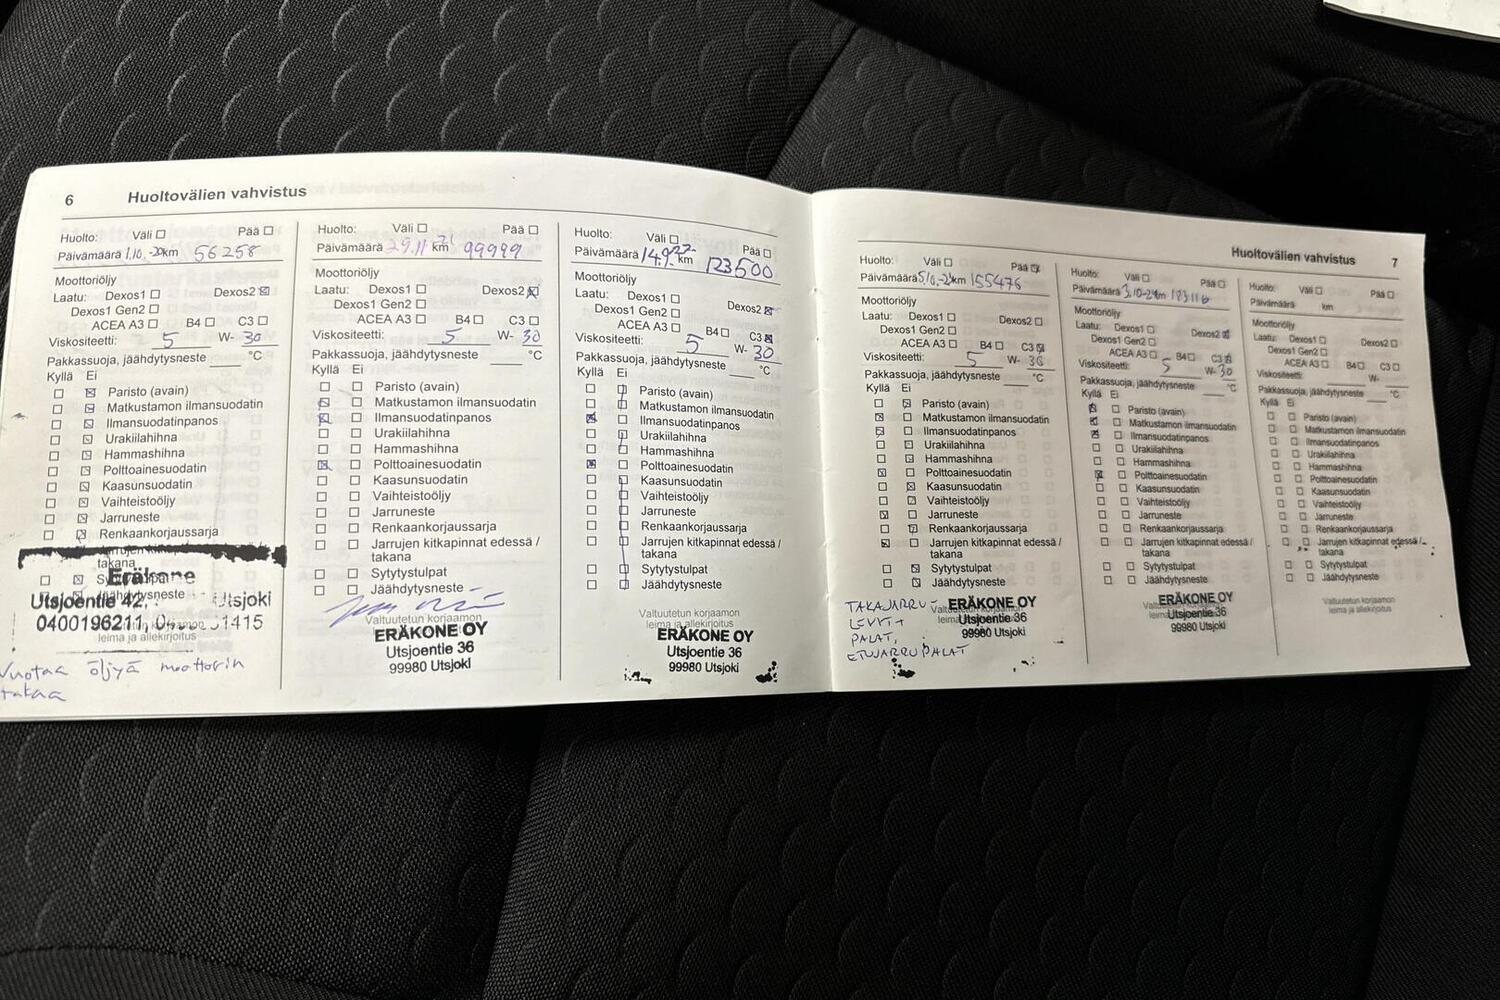 6 Huoltovälien vahvistus
Huolto: Väli ☐ Pää ☐
Päivämäärä 1.10.-20 km 56258
Moottoriöljy
Laatu: Dexos1 ☐ Dexos2 ☒
Dexos1 Gen2 ☐
ACEA A3 ☐ B4 ☐ C3 ☐
Viskositeetti: 5 W- 30
Pakkassuoja, jäähdytysneste °C
Kyllä Ei
☐ ☒ Paristo (avain)
☐ ☒ Matkustamon ilmansuodatin
☐ ☒ Ilmansuodatinpanos
☐ ☒ Urakiilahihna
☐ ☒ Hammashihna
☐ ☒ Polttoainesuodatin
☐ ☒ Kaasunsuodatin
☐ ☒ Vaihteistoöljy
☐ ☒ Jarruneste
☐ ☒ Renkaankorjaussarja
takana
Eräkone
Utsjoentie 42, Utsjoki
0400196211,
Vuotaa öljyä moottorin
takaa
Huolto: Väli ☐ Pää ☐
Päivämäärä 29.11 21 km 99999
Moottoriöljy
Laatu: Dexos1 ☐ Dexos2 ☒
Dexos1 Gen2 ☐
ACEA A3 ☐ B4 ☐ C3 ☐
Viskositeetti: 5 W- 30
Pakkassuoja, jäähdytysneste °C
Kyllä Ei
☐ ☐ Paristo (avain)
☒ ☐ Matkustamon ilmansuodatin
☒ ☐ Ilmansuodatinpanos
☐ ☐ Urakiilahihna
☐ ☐ Hammashihna
☒ ☐ Polttoainesuodatin
☐ ☐ Kaasunsuodatin
☐ ☐ Vaihteistoöljy
☐ ☐ Jarruneste
☐ ☐ Renkaankorjaussarja
☐ ☐ Jarrujen kitkapinnat edessä /
takana
☐ ☐ Sytytystulpat
☐ ☐ Jäähdytysneste
Valtuutetun korjaamon
ERÄKONE OY
Utsjoentie 36
99980 Utsjoki
Huolto: Väli ☐ Pää ☐
Päivämäärä 14.9.-22 km 123500
Moottoriöljy
Laatu: Dexos1 ☐ Dexos2 ☒
Dexos1 Gen2 ☐
ACEA A3 ☐ B4 ☐ C3 ☒
Viskositeetti: 5 W- 30
Pakkassuoja, jäähdytysneste °C
Kyllä Ei
☐ ☐ Paristo (avain)
☐ ☐ Matkustamon ilmansuodatin
☒ ☐ Ilmansuodatinpanos
☐ ☐ Urakiilahihna
☐ ☐ Hammashihna
☒ ☐ Polttoainesuodatin
☐ ☐ Kaasunsuodatin
☐ ☐ Vaihteistoöljy
☐ ☐ Jarruneste
☐ ☐ Renkaankorjaussarja
☐ ☐ Jarrujen kitkapinnat edessä /
takana
☐ ☐ Sytytystulpat
☐ ☐ Jäähdytysneste
Valtuutetun korjaamon
leima ja allekirjoitus
ERÄKONE OY
Utsjoentie 36
99980 Utsjoki
Huoltovälien vahvistus 7
Huolto: Väli ☐ Pää ☒
Päivämäärä km 155476
Moottoriöljy
Laatu: Dexos1 ☐ Dexos2 ☐
Dexos1 Gen2 ☐
ACEA A3 ☐ B4 ☐ C3 ☒
Viskositeetti: 5 W- 30
Pakkassuoja, jäähdytysneste °C
Kyllä Ei
☐ ☒ Paristo (avain)
☒ ☐ Matkustamon ilmansuodatin
☒ ☐ Ilmansuodatinpanos
☐ ☒ Urakiilahihna
☐ ☒ Hammashihna
☒ ☐ Polttoainesuodatin
☐ ☒ Kaasunsuodatin
☐ ☒ Vaihteistoöljy
☒ ☐ Jarruneste
☐ ☒ Renkaankorjaussarja
☒ ☐ Jarrujen kitkapinnat edessä /
takana
☐ ☒ Sytytystulpat
☐ ☒ Jäähdytysneste
TAKAJARRU-
LEVYT+
PALAT,
ETUJARRUPALAT
ERÄKONE OY
Utsjoentie 36
99980 Utsjoki
Huolto: Väli ☐ Pää ☐
Päivämäärä 3.10-24 km
Moottoriöljy
Laatu: Dexos1 ☐ Dexos2 ☒
Dexos1 Gen2 ☐
ACEA A3 ☐ B4 ☐ C3 ☒
Viskositeetti: 5 W- 30
Pakkassuoja, jäähdytysneste °C
Kyllä Ei
☒ ☐ Paristo (avain)
☒ ☐ Matkustamon ilmansuodatin
☒ ☐ Ilmansuodatinpanos
☐ ☐ Urakiilahihna
☐ ☐ Hammashihna
☒ ☐ Polttoainesuodatin
☐ ☐ Kaasunsuodatin
☐ ☐ Vaihteistoöljy
☐ ☐ Jarruneste
☐ ☐ Renkaankorjaussarja
☐ ☐ Jarrujen kitkapinnat edessä /
takana
☐ ☐ Sytytystulpat
☐ ☐ Jäähdytysneste
ERÄKONE OY
Utsjoentie 36
99980 Utsjoki
Huolto: Väli ☐ Pää ☐
Päivämäärä km
Moottoriöljy
Laatu: Dexos1 ☐ Dexos2 ☐
Dexos1 Gen2 ☐
ACEA A3 ☐ B4 ☐ C3 ☐
Viskositeetti: W-
Pakkassuoja, jäähdytysneste °C
Kyllä Ei
☐ ☐ Paristo (avain)
☐ ☐ Matkustamon ilmansuodatin
☐ ☐ Ilmansuodatinpanos
☐ ☐ Urakiilahihna
☐ ☐ Hammashihna
☐ ☐ Polttoainesuodatin
☐ ☐ Kaasunsuodatin
☐ ☐ Vaihteistoöljy
☐ ☐ Jarruneste
☐ ☐ Renkaankorjaussarja
☐ ☐ Jarrujen kitkapinnat edessä /
takana
☐ ☐ Sytytystulpat
☐ ☐ Jäähdytysneste
Valtuutetun korjaamon
leima ja allekirjoitus